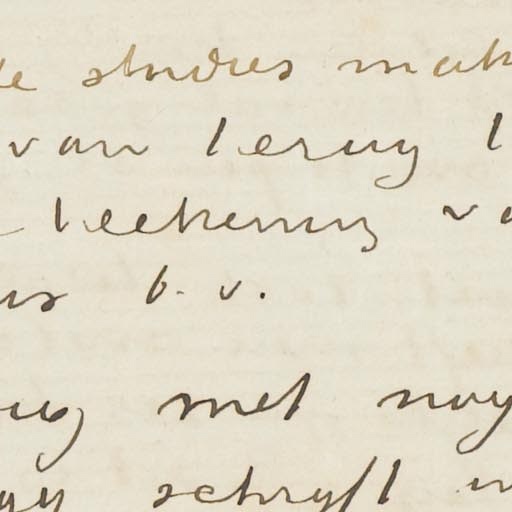 te studies mak
van terug t
teekening va
us b.v.
rug met nog
gy schryft m